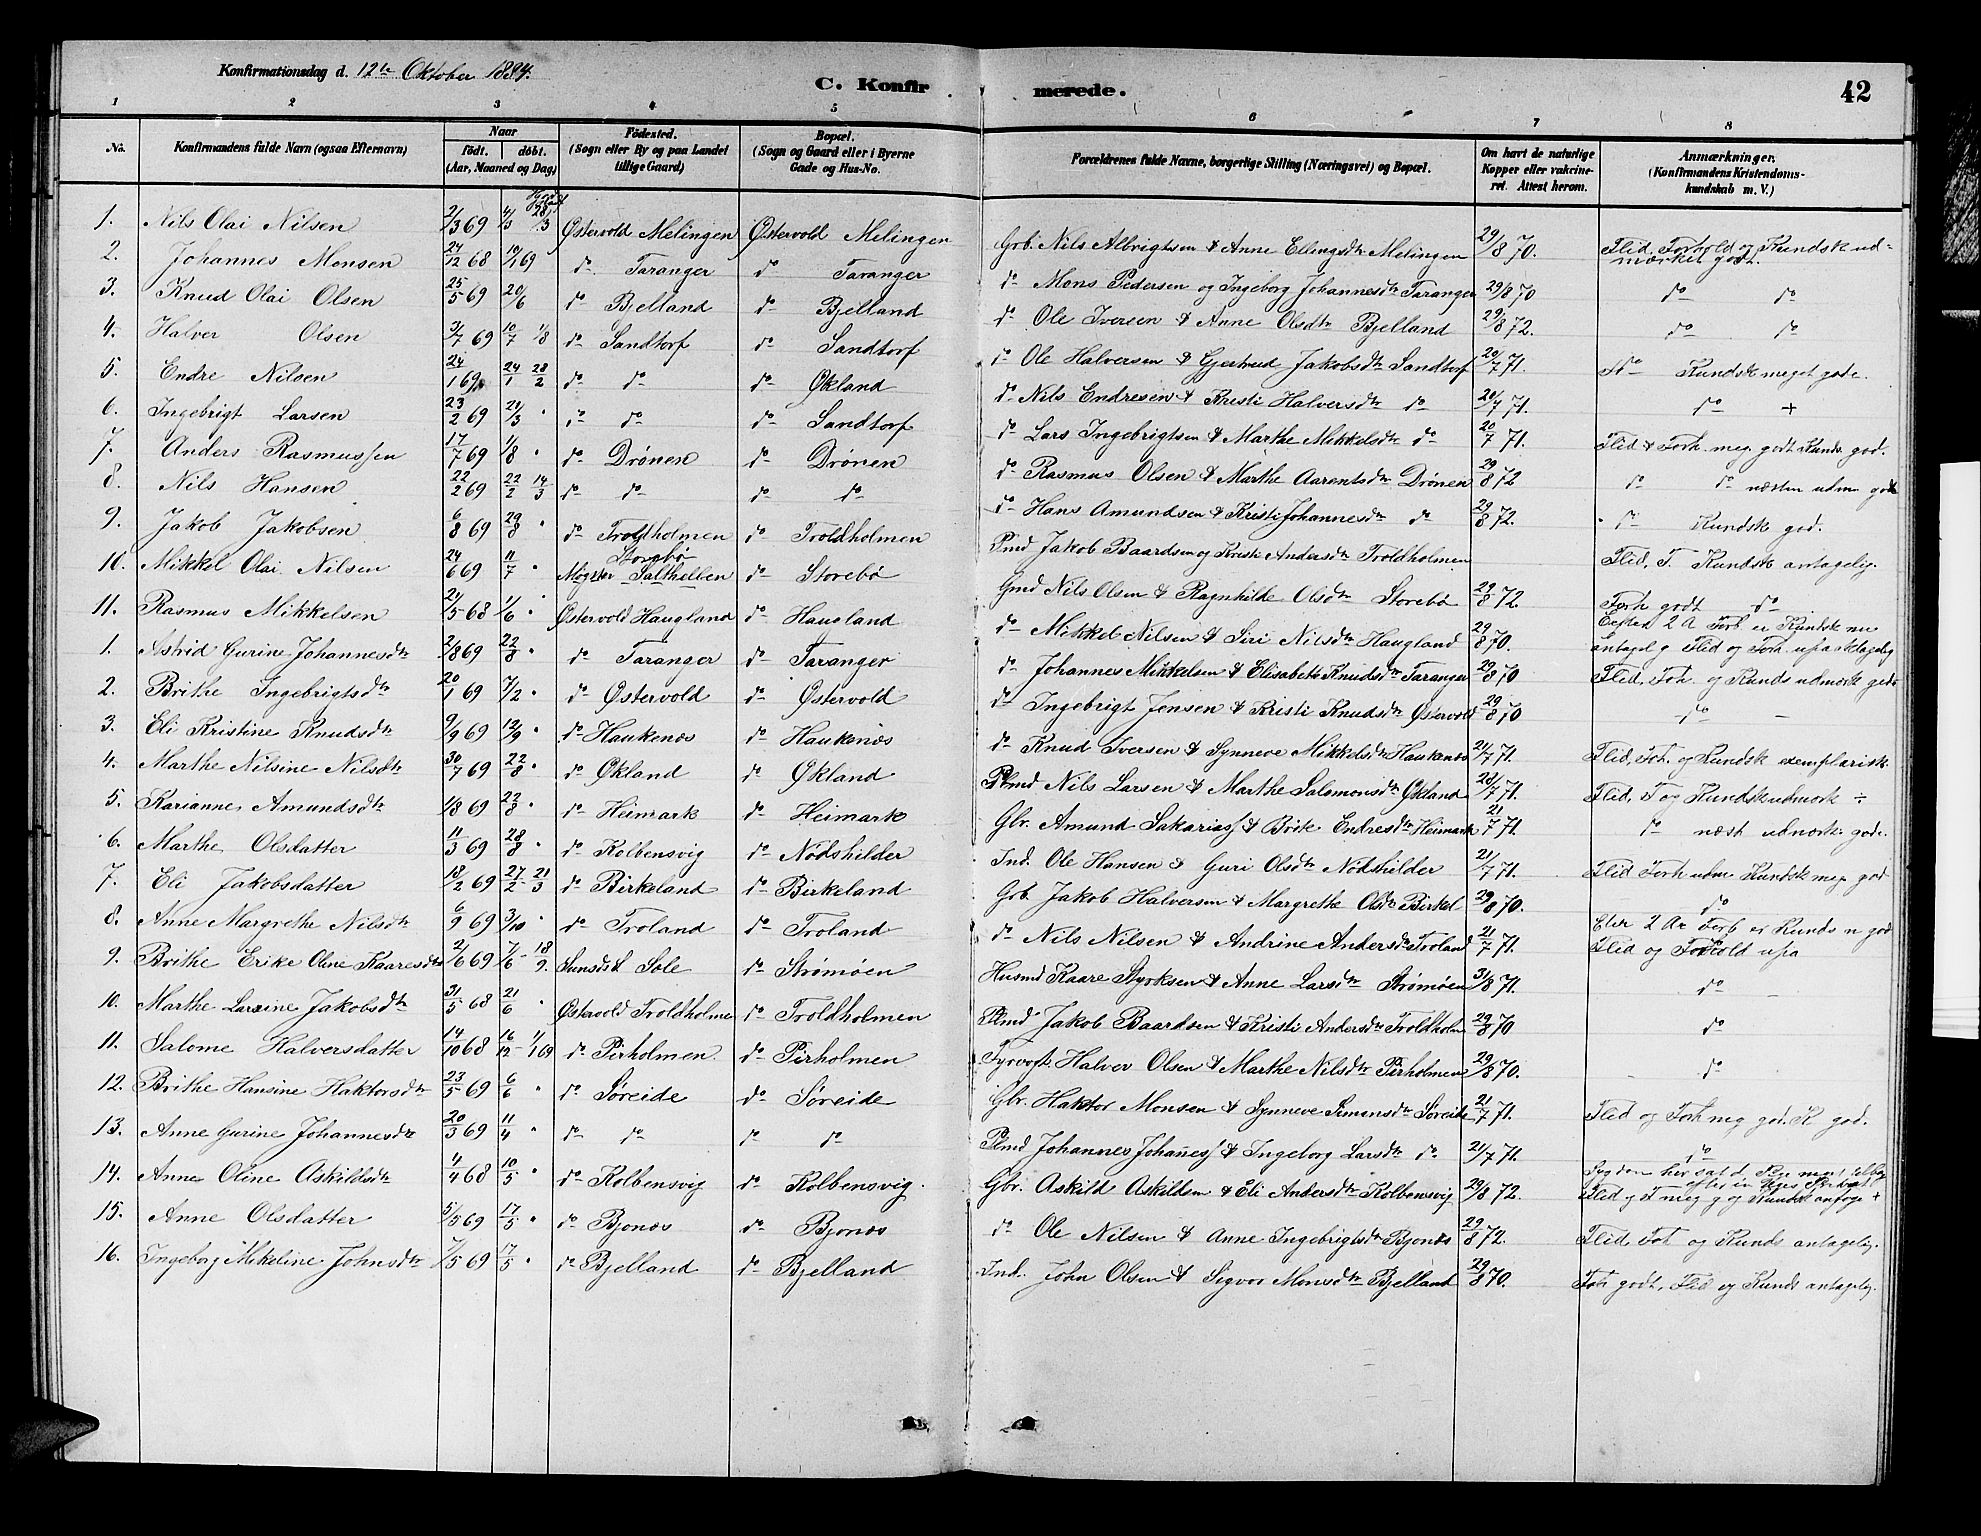 Konfirmationsdag d. 12te Oktober 1884.
C. Konfirmerede.
42
1 2 3 4 5 6 7 8
No. Konfirmandens fulde Navn (ogsaa Efternavn) Naar födt. döbt. (Aar, Maaned og Dag) Födested. (Sogn eller By og paa Landet tillige Gaard) Bopæl. (Sogn og Gaard eller i Byerne Gade og Hus-No. Forældrenes fulde Navne, borgerlige Stilling (Næringsvei) og Bopæl. Om havt de naturlige Kopper eller vakcineret. Attest herom. Anmærkninger. (Konfirmandens Kristendomskundskab m. V.)
1. Nils Olai Nilsen 2/3 69 4/3 28/3 Østervold Melingen Østervold Melingen Grb. Nils Albrigtsen & Anne Ellingsdtr Melingen 29/8 70. Flid, Forhold og Kundsk udmærket godt.
2. Johannes Monsen 24/12 68 10/1 69 do Taranger do Taranger do Mons Pedersen og Ingeborg Johannesdtr Taranger 29/8 70 do do
3. Knud Olai Olsen 25/5 69 20/6 do Bjelland do Bjelland do Ole Iversen & Anne Olsdtr Bjelland 29/8 72. do do
4. Halver Olsen 3/7 69 10/7 1/8 do Sandtorf do Sandtorf do Ole Halversen & Gjertrud Jakobsdtr Sandtorf 20/7 71. do Kundsk meget gode.
5. Endre Nilsen 24/1 69 24/1 28/2 do do do Økland do Nils Endresen & Kristi Halversdtr do 20/7 71. do +
6. Ingebrigt Larsen 23/2 69 21/3 " do do do Sandtorf do Lars Ingebrigtsen & Marthe Mikkelsdtr do 20/7 71. Flid & Forh. meg. godt Kunds. god.
7. Anders Rasmussen 17/7 69 1/8 " do Drönen do Drönen do Rasmus Olsen & Marthe Aarentsdtr Drönen 29/8 72 do do næsten udm. godt
8. Nils Hansen 22/2 69 22/2 14/3 do do do do do Hans Amundsen & Kristi Johannesdtr do 29/8 72. do Kundsk god.
9. Jakob Jakobsen 6/8 69 29/8 " do Troldholmen do Troldholmen Plmd Jakob Baardsen og Kristi Andersdtr Troldholmen Flid, F. Kundsk antagelig.
10. Mikkel Olai Nilsen 24/6 69 11/7 " Storebø Møgster Salthelben do Storebø Gmd Nils Olsen & Ragnhilde Olsdtr Storebø 29/8 72. Forh godt do
11. Rasmus Mikkelsen 21/5 68 1/6 " Østervold Haugland do Haugland do Mikkel Nilsen & Siri Nilsdtr Haugland 29/8 70. Efter 2 A Forb er Kundsk nu antagel g Flid og Forh. upaaklagelig
1. Astrid Gurine Johannesdtr 2/8 69 22/8 " do Taranger do Taranger do Johannes Mikkelsen & Elisabeth Knudsdtr Taranger 29/8 70 Flid, Foh. og Kunds udmærk gode
2. Brithe Ingebrigtsdtr 20/1 69 7/2 " do Østervold do Østervold do Ingebrigt Jensen & Kristi Knudsdtr Østervold 29/8 70 do -
3. Eli Kristine Knudsdtr 9/9 69 12/9 " do Haukenæs do Haukenæs do Knud Iversen & Synneve Mikkelsdtr Haukenæs 21/7 71. Flid, Foh. og Kundsk exemplarisk.
4. Marthe Nilsine Nilsdtr 30/7 69 22/8 " do Økland do Økland Plmd Nils Larsen & Marthe Salomonsdtr Økland 21/7 71. Flid, F og Kundsk udmærk ÷
5. Karianne Amundsdtr 1/8 69 22/8 " do Heimark do Heimark Gbr. Amund Sakariass & Brite Endresdtr Heimark 21/7 71. do næst udmærk gode.
6. Marthe Olsdatter 11/3 69 28/8 " do Kolbensvig do Nödshilder Ind. Ole Hansen & Guri Olsdtr Nödshilder 21/7 71. Flid Forh udm Kundsk meg god
7. Eli Jakobsdatter 18/2 69 27/2 - 21/3 do Birkeland do Birkeland Grb. Jakob Halversen & Margrethe Olsdtr Birkel 29/8 70. do
8. Anne Margrethe Nilsdtr 6/9 69 3/10 " do Troland do Troland do Nils Nilsen & Andrine Andersdtr Troland 21/7 71. Efter 2 Aa Forb er Kunds n god Flid og Forhold upa
9. Brithe Erike Oline Kaaresdtr 2/6 69 7/6 - 18/9. Sunds S Sole do Strömöen Husmd Kaare Styrksen & Anne Larsdtr Strömöen 31/8 71. do -
10. Marthe Larsine Jakobsdtr 31/5 68 21/6 " Østervold Troldholme do Troldholmen Plmd Jakob Baardsen & Kristi Andersdtr Troldholm 29/8 70 do
11. Salome Halversdatter 14/10 68 16/12 - 1/1 69 do Pirholmen do Pirholmen Fyrvogt. Halver Olsen & Marthe Nilsdtr Pirholmen 29/8 70. do
12. Brithe Hansine Haktorsdtr 23/5 69 6/6 " do Söreide do Söreide Gbr. Haktor Monsen & Synneve Simonsdtr Söreide 21/7 71. Flid og Forh meg god. K god.
13. Anne Gurine Johannesdtr 20/3 69 11/4 " do do do do Plmd Johannes Johaness & Ingeborg Larsdtr do 21/7 71. do
14. Anne Oline Askildsdtr 4/4 68 10/5 " do Kolbensvig do Kolbensvig. Gbr. Askild Askildsen & Eli Andersdtr Kolbensvig 29/8 72. Flid g F meg g og Kundsk antage +
15. Anne Olsdatter 5/5 69 17/5 " do Bjonæs do Bjonæs do Ole Nilsen & Anne Ingebrigtsdtr Bjonæs 29/8 72. Flid, Foh og Kunds antagelig.
16. Ingeborg Mikeline Johnsdtr 7/5 69 17/5 " do Bjelland do Bjelland Ind. John Olsen & Sigvor Monsdtr Bjelland 29/8 70. Foh godt, Flid og Kunds antagelig.